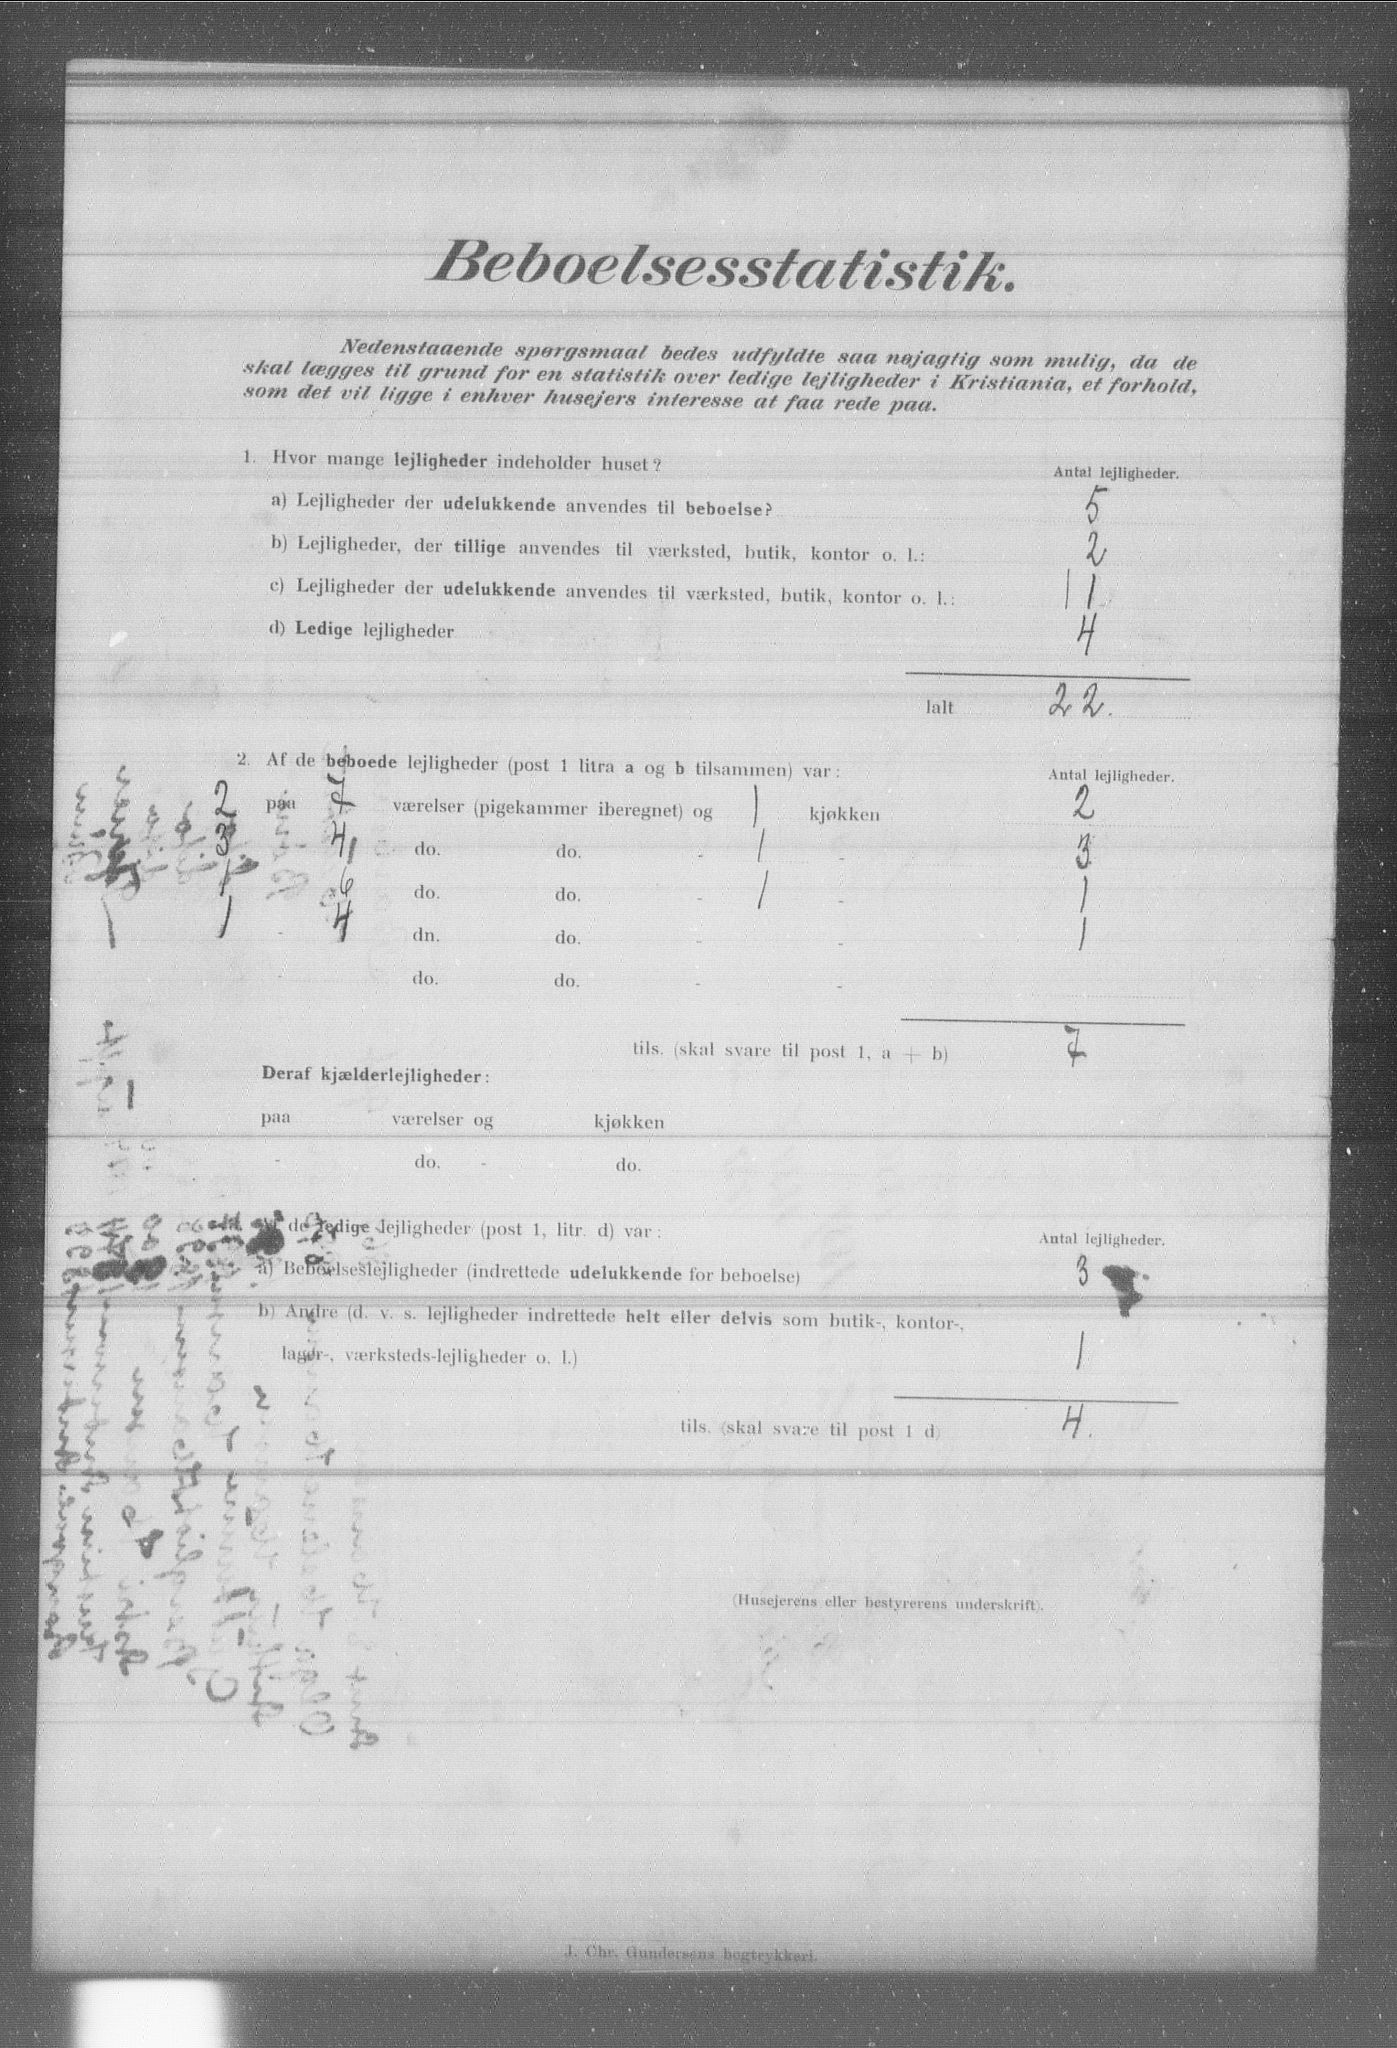 Beboelsesstatistik.
Nedenstaaende spørgsmaal bedes udfyldte saa nøjagtig som mulig, da de
skal lægges til grund for en statistik over ledige lejligheder i Kristiania, et forhold,
som det vil ligge i enhver husejers interesse at faa rede paa.
1. Hvor mange lejligheder indeholder huset?
Antal lejligheder.
a) Lejligheder der udelukkende anvendes til beboelse? 5
b) Lejligheder, der tillige anvendes til værksted, butik, kontor o. l.: 2
c) Lejligheder der udelukkende anvendes til værksted, butik, kontor o. l.: 11
d) Ledige lejligheder 4
Ialt 22.
2. Af de beboede lejligheder (post 1 litra a og b tilsammen) var:
Antal lejligheder.
2 paa 7 værelser (pigekammer iberegnet) og 1 kjøkken 2
3 4 do. do. - 1 - 3
1 6 do. do. - 1 - 1
1 - 4 dn. do. - - 1
- do. do. - -
tils. (skal svare til post 1, a + b) 7
Deraf kjælderlejligheder:
paa værelser og kjøkken
- do. - do.
de ledige lejligheder (post 1, litr. d) var:
Antal lejligheder.
a) Beboelseslejligheder (indrettede udelukkende for beboelse) 3
b) Andre (d. v. s. lejligheder indrettede helt eller delvis som butik-, kontor-,
lager-, værksteds-lejligheder o. l.) 1
tils. (skal svare til post 1 d) 4.
(Husejerens eller bestyrerens underskrift).
J. Chr. Gundersens bogtrykkeri.